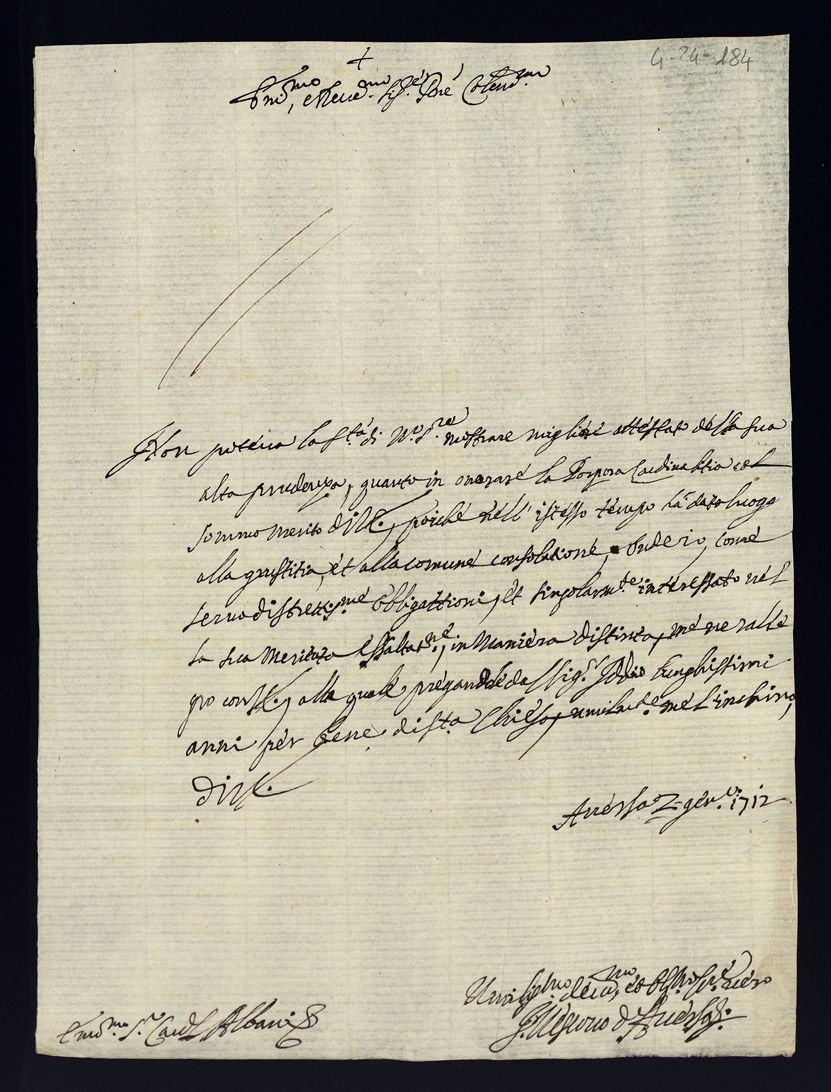 4-24-184
+
Em.mo, e Reu.mo Sig.r P.ne Col.mo
Non poteua la S.tà di N.ro S.re mostrare miglior attestato della sua
alta prudenza, quanto in onorare la Porpora Cardinalitia col
sommo merito di V.E., poiche nell' istesso tempo hà dato luogo
alla giustitia, et alla comune consolatione, Onde io, come
seruo di strettis.me obbligattioni, et singolarm.te interessato nel
la sua meritata essaltat.ne, in maniera distinta, me ne ralle
gro con V.E., alla quale pregando da Sig.r Iddio lunghissimi
anni per bene di S.ta Chiesa, humilm.te me l'inchino,
di V.E.
Auersa 2 gen.o 1712
Vmiliss.mo, deu.mo, et Obl.mo Ser.e uero
Il Vescouo d'Auersa
Em.mo S.r Card.l Albani